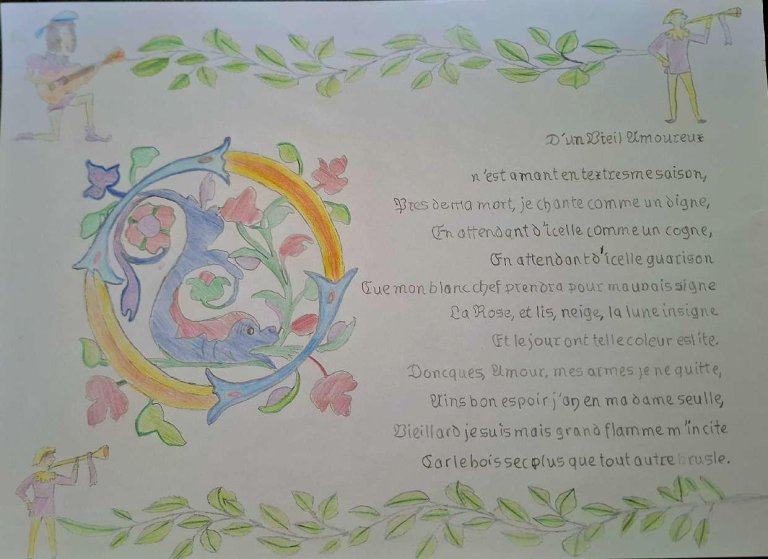 D'un Vieil Amoureux
n'est amant en textresme saison,
Pres de ma mort, je chante comme un digne,
En attendant d'icelle comme un cogne,
En attendant d'icelle guarison
Que mon blanc chef prendra pour mauvais signe
La Rose, et lis, neige, la lune insigne
Et le jour ont telle coleur eslite.
Doncques, Amour, mes armes je ne quitte,
Ains bon espoir j'ay en ma dame seulle,
Vieillard je suis mais grand flamme m'incite
Car le bois sec plus que tout autre brusle.